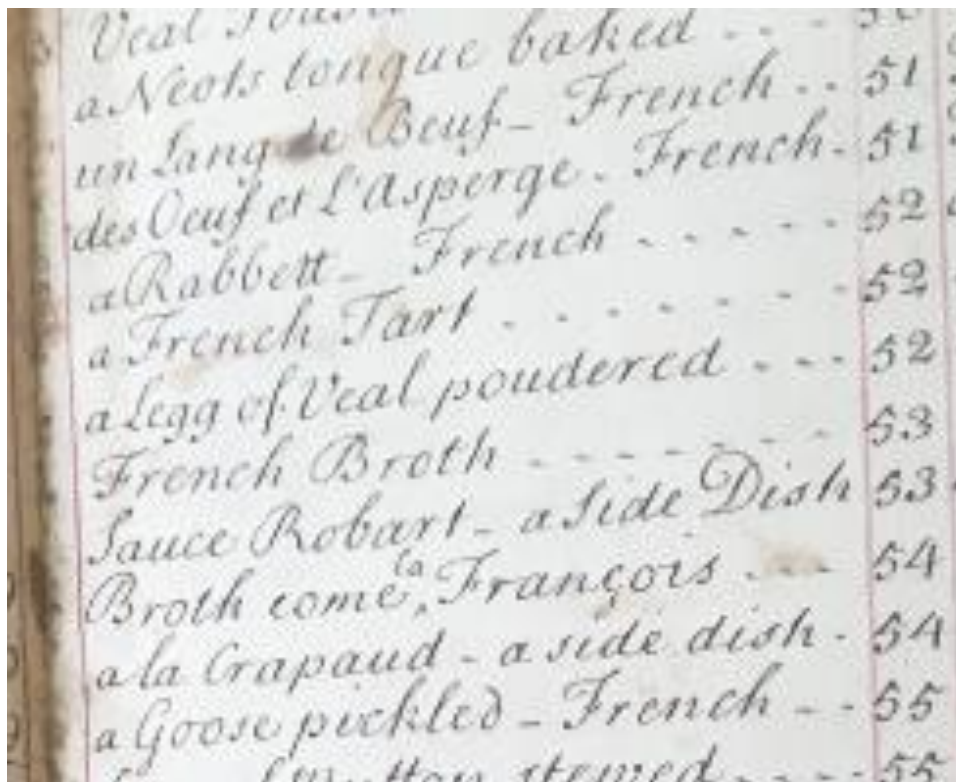 Veal
a Neots tongue baked - - -
un Lang de Beuf - French - - 51
des Oeuf et L'Asperge - French - 51
a Rabbett - French - - - - - 52
a French Tart - - - - - - - 52
a Legg of Veal poudered - - - 52
French Broth - - - - - - - 53
Sauce Robart - a side Dish 53
Broth come la François - - - 54
a la Crapaud - a side dish - 54
a Goose pickled - French - - 55
Mutton stewed - - - - 55